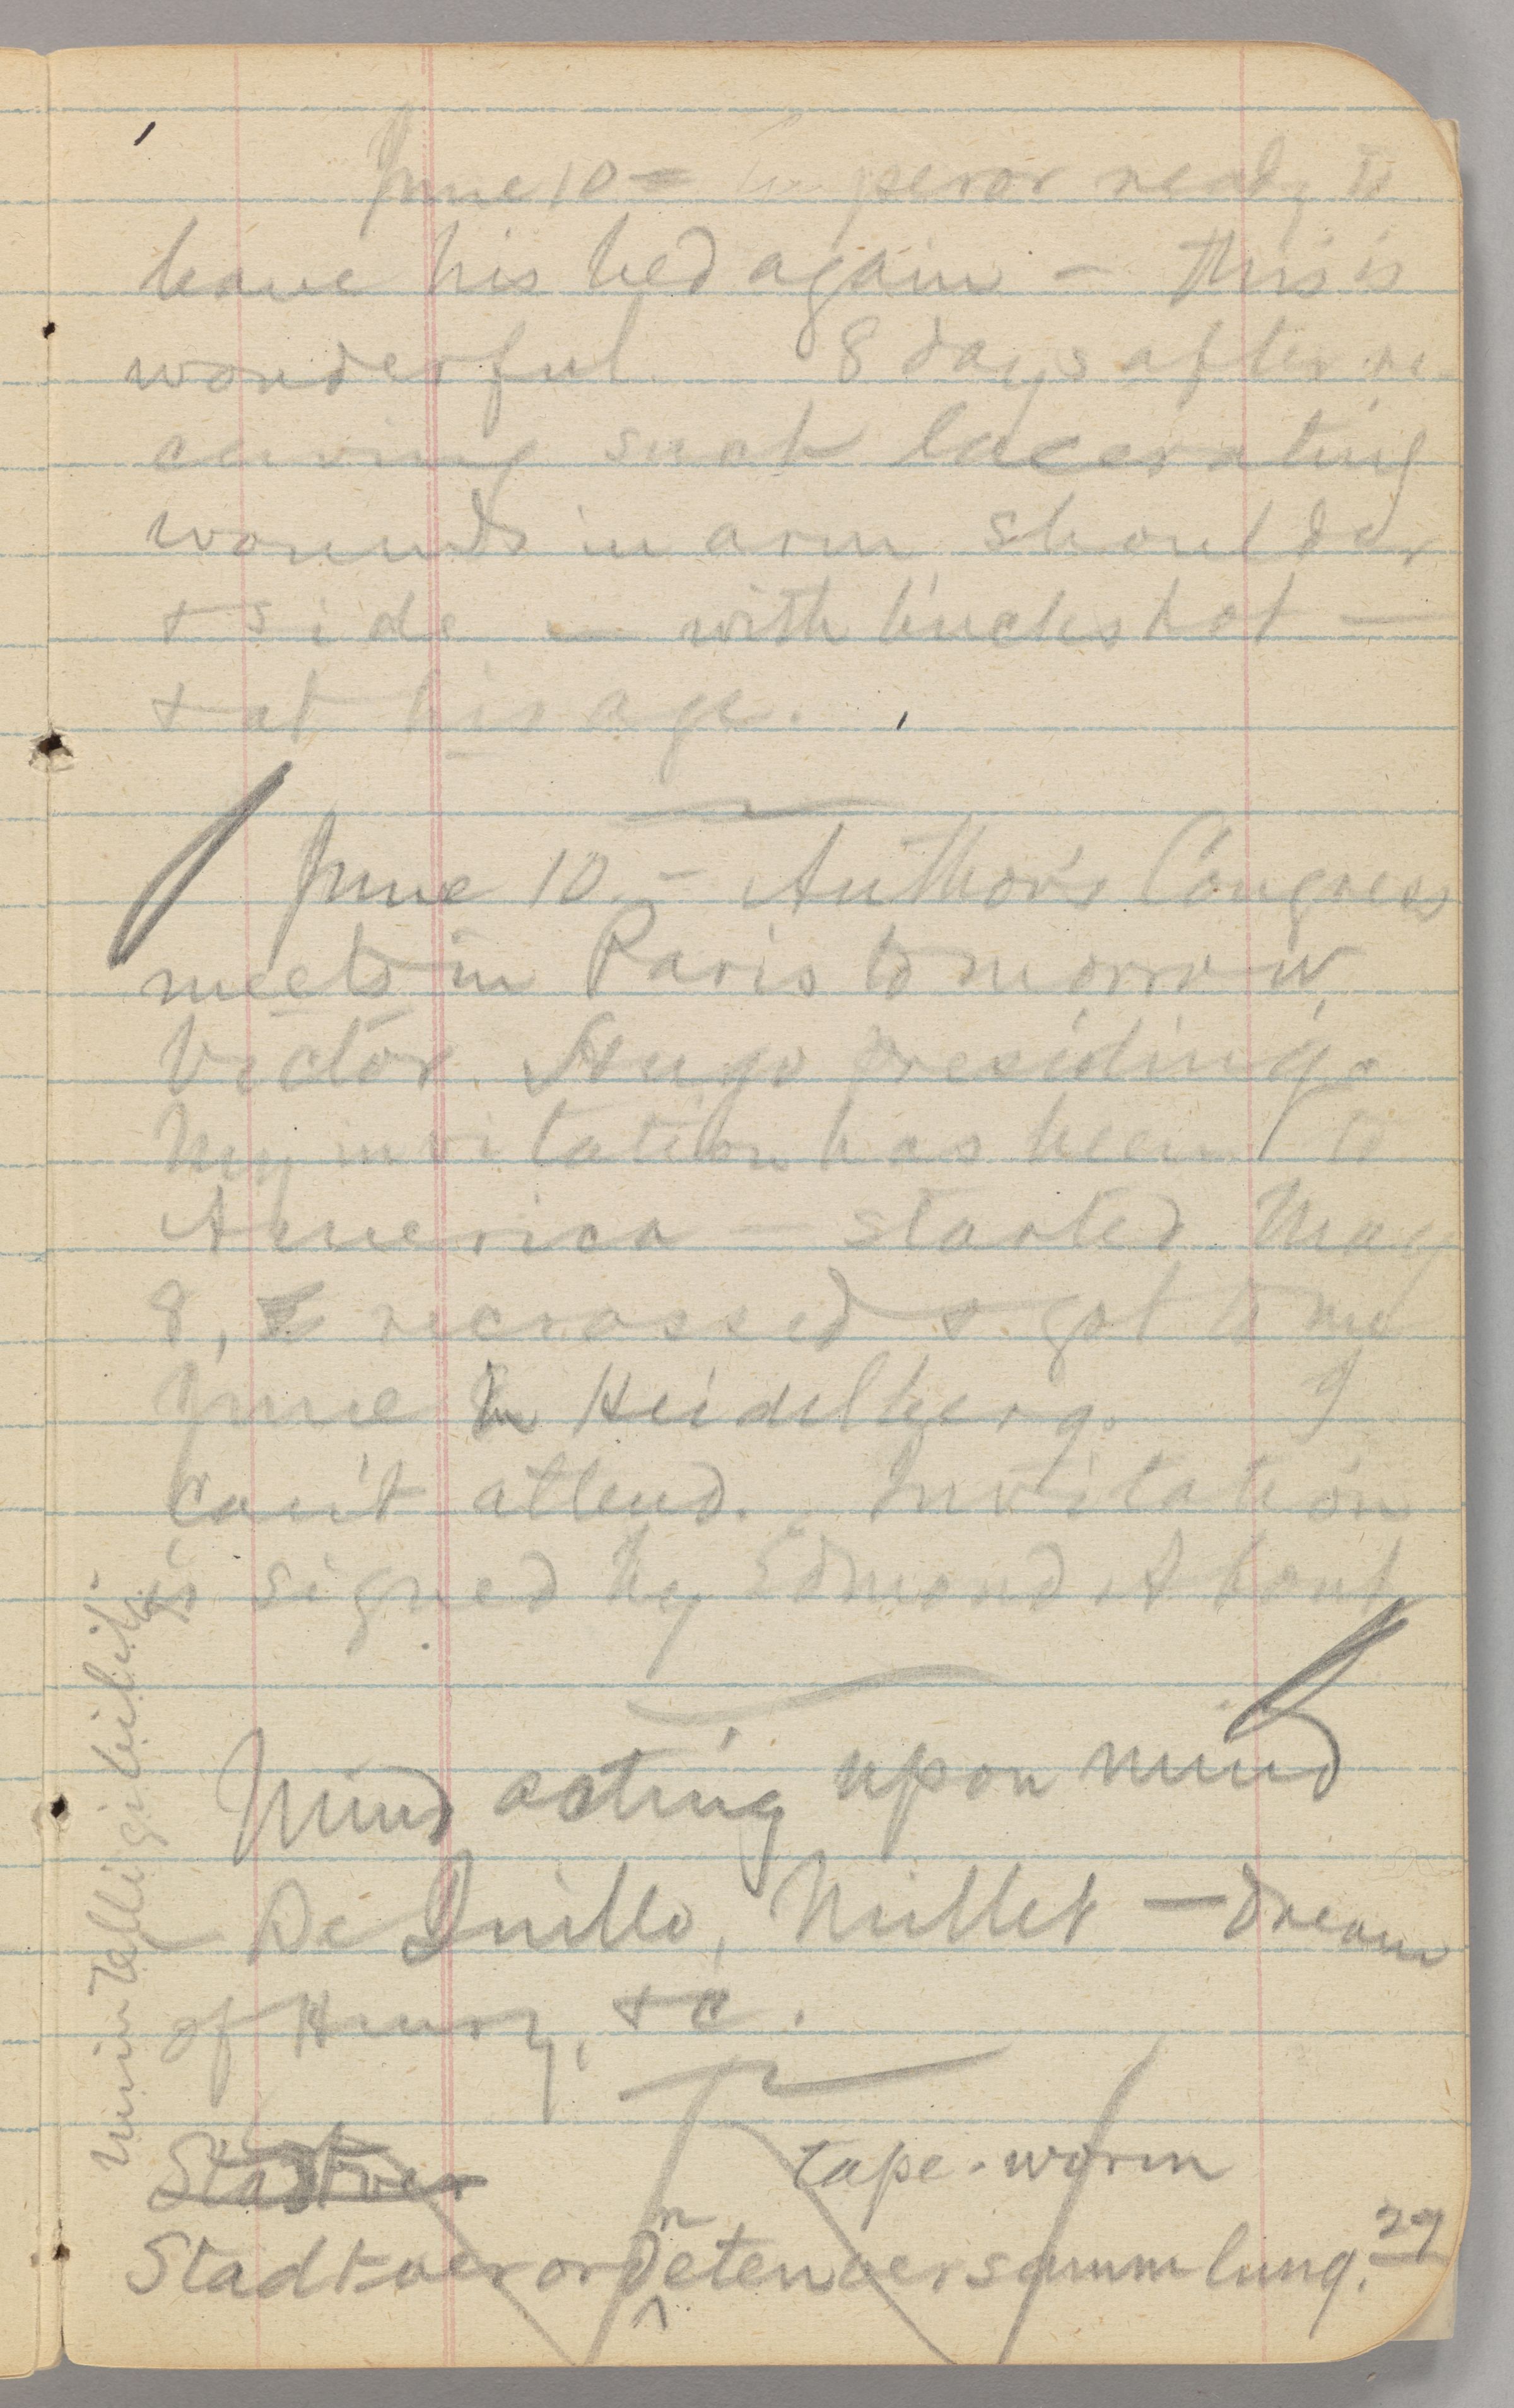 June 10 — Emperor ready to
leave his bed again — this is
wonderful. 8 days after re-
ceiving such lacerating
wounds in arm, shoulder
& side — with buckshot —
& at his age.
June 10. — Author's Congress
meets in Paris tomorrow,
Victor Hugo presiding.
My invitation has been to
America — started May
8, recrossed & got to me
June in Heidelberg. I
can't attend. Invitation
is signed by Edmond About.
Mind acting upon mind
De Quille, Millet — dream
of Henry, &c.
Stadtver
tape-worm
Stadtverordnetenversammlung. 27
Unintelligibility